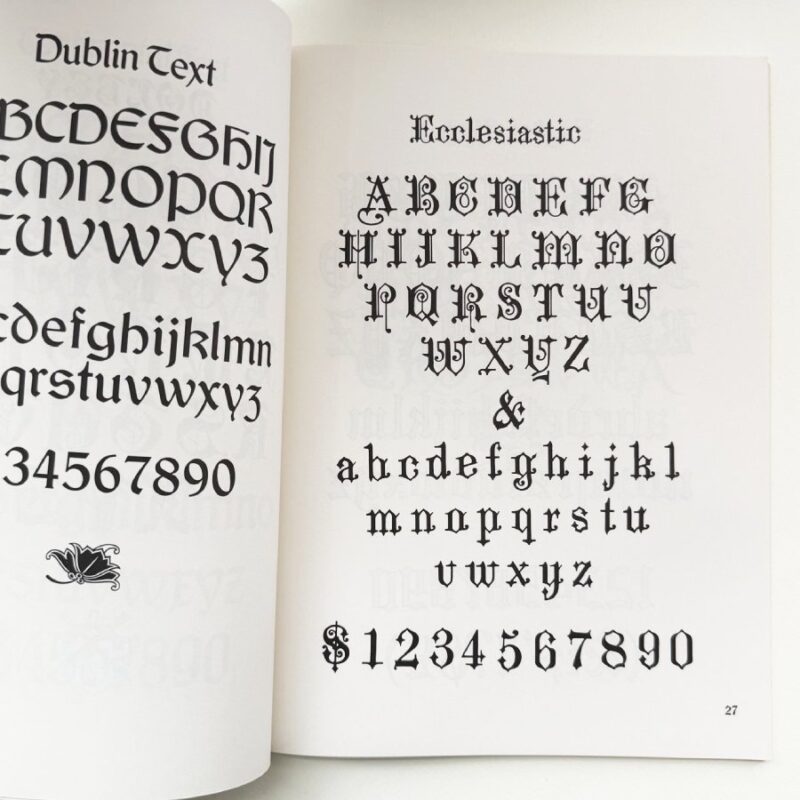 Dublin Text
BCDEFGHIJ
LMNOPQR
TUVWXYZ
cdefghijklmn
qrstuvwxyz
34567890
Ecclesiastic
ABCDEFG
HIJKLMNO
PQRSTUV
WXYZ
&
abcdefghijkl
mnopqrstu
vwxyz
$1234567890
27